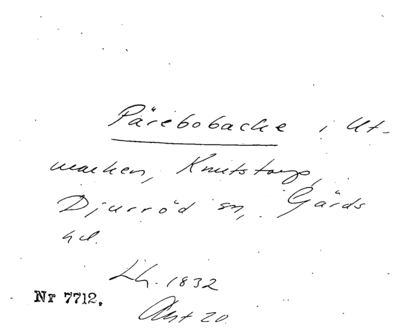 Pärebobacke i Ut-
marken, Knutstorp,
Djurröd sn, Gärds
hd.
Lh. 1832
Akt 20
Nr 7712.